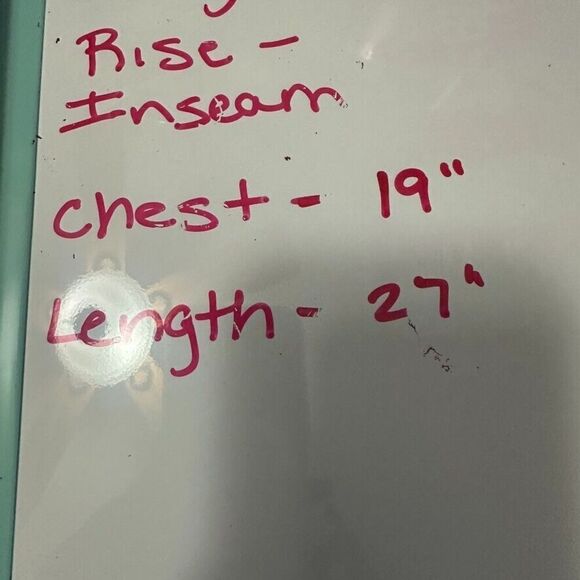 Rise -
Inseam
Chest - 19"
Length - 27"